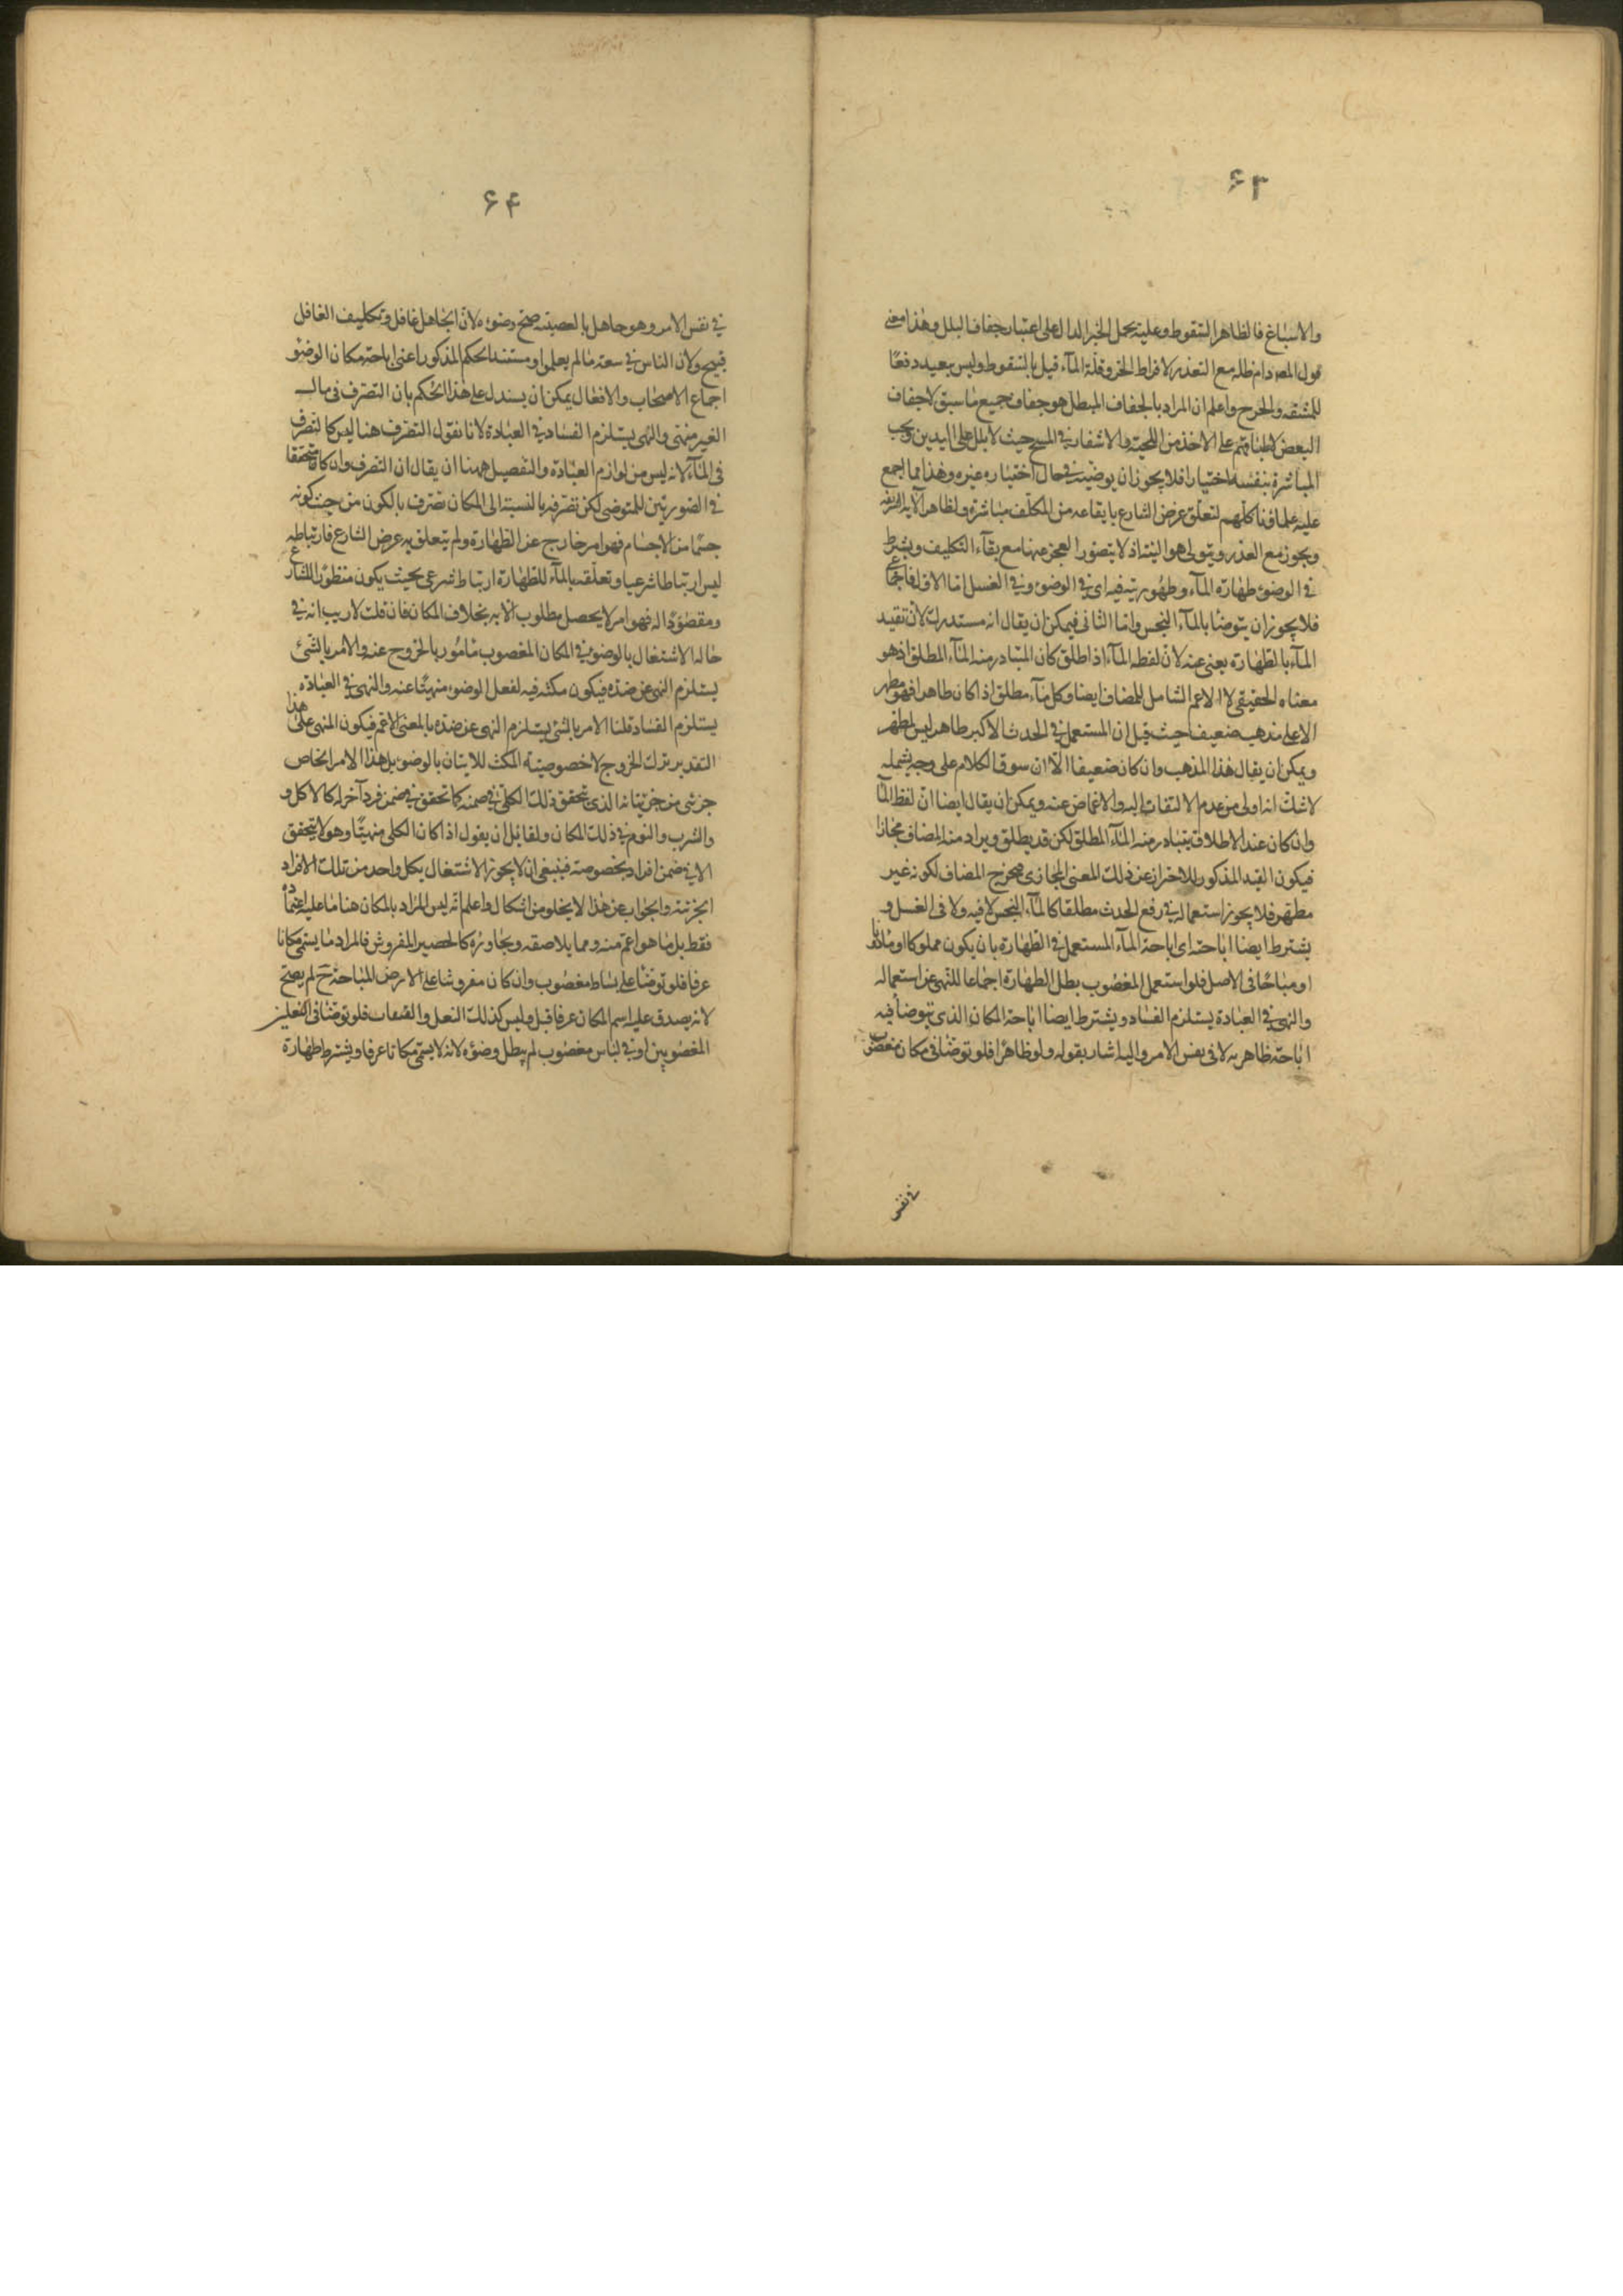 ۶۳
والاسباغ فالظاهر السقوط وعليه يحمل الخبر الدال على اعتبار جفاف البلل وهذا معنى
قول المصر دام ظله مع التعذر لافراط الحر وقلة المآء قيل بالسقوط وليس ببعيد دفعًا
للمشقة والحرج واعلم ان المراد بالجفاف المبطل هو جفاف جميع ما سبق لاجفاف
البعض لاطباقهم على الاخذ من اللحية والاشفار في المسح حيث لا بلل على اليدين ويجب
المباشرة بنفسه اختيارا فلا يجوز ان يوضيه في حال اختياره غيره وهذا مما اجمع
عليه علماؤنا كلهم لتعلق غرض الشارع بايقاعه من المكلف مباشرة ولظاهر الآية الشريفة
ويجوز مع العذر ويتولى هو النية اذ لا يتصور العجز عنها مع بقآء التكليف ويشترط
في الوضوء طهارة المآء وطهوريته فيه اى في الوضوء وفي الغسل اما الاول فاجماعى
فلا يجوز ان يتوضأ بالمآء النجس واما الثانى فيمكن ان يقال انه مستدرك لان تقييد
المآء بالطهارة يغنى عنه لان لفظه المآء اذا اطلق كان المتبادر منه المآء المطلق اذ هو
معناه الحقيقى لا الاعم الشامل للمضاف ايضا وكل مآء مطلق اذا كان طاهرا فهو مطهر
الا على مذهب ضعيف حيث قيل ان المستعمل في الحدث الاكبر طاهر ليس بمطهر
ويمكن ان يقال هذا المذهب وان كان ضعيفا الّا ان سوق الكلام على وجه يشمله
لا شك انه اولى من عدم الالتفات اليه والاغماض عنه ويمكن ان يقال ايضا ان لفظ المآء
وان كان عند الاطلاق يتبادر منه المآء المطلق لكن قد يطلق ويراد منه المضاف مجازا
فيكون القيد المذكور للاحتراز عن ذلك المعنى المجازى فيخرج المضاف لكونه غير
مطهر فلا يجوز استعماله في رفع الحدث مطلقا كالمآء النجس لا فيه ولا فى الغسل و
يشترط ايضا اباحته اى اباحة المآء المستعمل في الطهارة بان يكون مملوكا او ماذونا
او مباحًا فى الاصل فلو استعمل المغصوب بطل الطهارة اجماعا للنهى عن استعماله
والنهى في العبادة يستلزم الفساد ويشترط ايضا اباحة المكان الذى يتوضأ فيه
اباحة ظاهرية لا فى نفس الامر واليه اشار بقوله ولو ظاهرًا فلو توضأ فى مكان مغصوب
في نفس
۶۴
في نفس الامر وهو جاهل بالغصبية صح وضوءه لان الجاهل غافل وتكليف الغافل
قبيح ولان الناس في سعة ما لم يعلموا ومستند الحكم المذكور اعنى اباحة مكان الوضوء
اجماع الاصحاب والافعال يمكن ان يستدل على هذا الحكم بان التصرف فى مال
الغير منهى والنهى يستلزم الفساد في العبادة لانا نقول التصرف هنا ليس كالتصرف
فى المآء لانه ليس من لوازم العبادة والتفصيل ههنا ان يقال ان التصرف وان كان متحققا
في الصورتين للمتوضى لكن تصرفه بالنسبة الى المكان تصرف بالكون من حيث كونه
جسمًا من الاجسام فهو امر خارج عن الطهارة ولم يتعلق به غرض الشارع فارتباطه
ليس ارتباطا شرعيا وتعلقه بالمآء للطهارة ارتباط شرعى بحيث يكون منظورًا للشارع
ومقصودًا له فهو امر لا يحصل مطلوب الا به بخلاف المكان فان قلت لا ريب انه في
حالة الاشتغال بالوضوء في المكان المغصوب مأمور بالخروج عنه والامر بالشئ
يستلزم النهى عن ضده فيكون مكثه فيه لفعل الوضوء منهيًا عنه والنهى في العبادة
يستلزم الفساد قلنا الامر بالشئ يستلزم النهى عن ضده بالمعنى الاعم فيكون المنهى على هذا
التقدير ترك الخروج لا خصوصية المكث للاتيان بالوضوء بل هذا الامر الخاص
جزئى من جزئياته الذى تحقق ذلك الكلى في ضمنه كما تحقق في ضمن فرد آخر له كالاكل و
والشرب والنوم في ذلك المكان ولقائل ان يقول اذا كان الكلى منهيًا وهو لا يتحقق
الا في ضمن افراد بخصوصه فينبغى ان لا يجوز الاشتغال بكل واحد من تلك الافراد
الجزئية والجواب عن هذا لا يخلو من اشكال واعلم انه ليس المراد بالمكان هنا ما عليه اعتماده
فقط بل ما هو اعم منه ومما يلاصقه ويجاوره كالحصير المفروش فالمراد ما يسمى مكانا
عرفا فلو توضأ على بساط مغصوب وان كان مفروشا على الارض المباحة ح لم يصح
لانه يصدق عليه اسم المكان عرفا قيل وليس كذلك النعل والقبقاب فلو توضأ فى النعلين
المغصوبين او في لباس مغصوب لم يبطل وضوءه لانه لا يسمى مكانا عرفا ويشترط طهارة